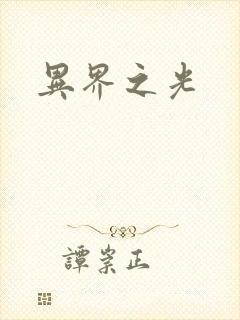 異界之光
譚崇正